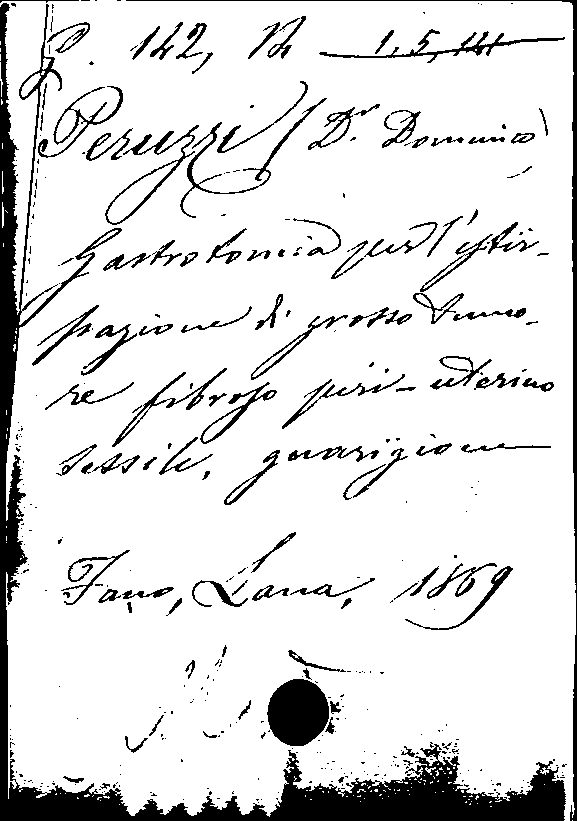 G. 142, 12 1, 5, 141
Peruzzi / Dr. Domenico
Gastrotomia per l'estir-
pazione di grosso tumo-
re fibroso peri-uterino
sessile, guarigione
Fano, Lana, 1869